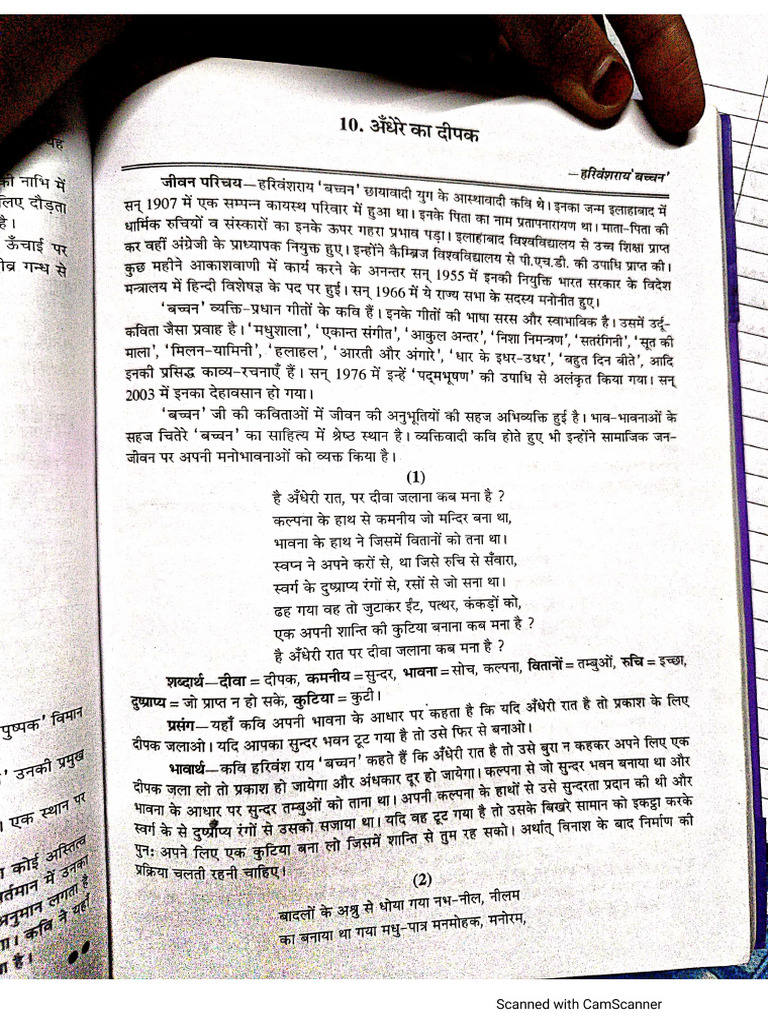 10. अँधेरे का दीपक
—हरिवंशराय 'बच्चन'
जीवन परिचय—हरिवंशराय 'बच्चन' छायावादी युग के आस्थावादी कवि थे। इनका जन्म इलाहाबाद में
सन् 1907 में एक सम्पन्न कायस्थ परिवार में हुआ था। इनके पिता का नाम प्रतापनारायण था। माता-पिता की
धार्मिक रुचियों व संस्कारों का इनके ऊपर गहरा प्रभाव पड़ा। इलाहाबाद विश्वविद्यालय से उच्च शिक्षा प्राप्त
कर वहीं अंग्रेजी के प्राध्यापक नियुक्त हुए। इन्होंने कैम्ब्रिज विश्वविद्यालय से पी.एच.डी. की उपाधि प्राप्त की।
कुछ महीने आकाशवाणी में कार्य करने के अनन्तर सन् 1955 में इनकी नियुक्ति भारत सरकार के विदेश
मन्त्रालय में हिन्दी विशेषज्ञ के पद पर हुई। सन् 1966 में ये राज्य सभा के सदस्य मनोनीत हुए।
'बच्चन' व्यक्ति-प्रधान गीतों के कवि हैं। इनके गीतों की भाषा सरस और स्वाभाविक है। उसमें उर्दू-
कविता जैसा प्रवाह है। 'मधुशाला', 'एकान्त संगीत', 'आकुल अन्तर', 'निशा निमन्त्रण', 'सतरंगिनी', 'सूत की
माला', 'मिलन-यामिनी', 'हलाहल', 'आरती और अंगारे', 'धार के इधर-उधर', 'बहुत दिन बीते', आदि
इनकी प्रसिद्ध काव्य-रचनाएँ हैं। सन् 1976 में इन्हें 'पद्मभूषण' की उपाधि से अलंकृत किया गया। सन्
2003 में इनका देहावसान हो गया।
'बच्चन' जी की कविताओं में जीवन की अनुभूतियों की सहज अभिव्यक्ति हुई है। भाव-भावनाओं के
सहज चितेरे 'बच्चन' का साहित्य में श्रेष्ठ स्थान है। व्यक्तिवादी कवि होते हुए भी इन्होंने सामाजिक जन-
जीवन पर अपनी मनोभावनाओं को व्यक्त किया है।
(1)
है अँधेरी रात, पर दीवा जलाना कब मना है ?
कल्पना के हाथ से कमनीय जो मन्दिर बना था,
भावना के हाथ ने जिसमें वितानों को तना था।
स्वप्न ने अपने करों से, था जिसे रुचि से सँवारा,
स्वर्ग के दुष्प्राप्य रंगों से, रसों से जो सना था।
ढह गया वह तो जुटाकर ईंट, पत्थर, कंकड़ों को,
एक अपनी शान्ति की कुटिया बनाना कब मना है ?
है अँधेरी रात पर दीवा जलाना कब मना है ?
शब्दार्थ—दीवा = दीपक, कमनीय = सुन्दर, भावना = सोच, कल्पना, वितानों = तम्बुओं, रुचि = इच्छा,
दुष्प्राप्य = जो प्राप्त न हो सके, कुटिया = कुटी।
प्रसंग—यहाँ कवि अपनी भावना के आधार पर कहता है कि यदि अँधेरी रात है तो प्रकाश के लिए
दीपक जलाओ। यदि आपका सुन्दर भवन टूट गया है तो उसे फिर से बनाओ।
भावार्थ—कवि हरिवंश राय 'बच्चन' कहते हैं कि अँधेरी रात है तो उसे बुरा न कहकर अपने लिए एक
दीपक जला लो तो प्रकाश हो जायेगा और अंधकार दूर हो जायेगा। कल्पना से जो सुन्दर भवन बनाया था और
भावना के आधार पर सुन्दर तम्बुओं को ताना था। अपनी कल्पना के हाथों से उसे सुन्दरता प्रदान की थी और
स्वर्ग के से दुष्प्राप्य रंगों से उसको सजाया था। यदि वह टूट गया है तो उसके बिखरे सामान को इकट्ठा करके
पुनः अपने लिए एक कुटिया बना लो जिसमें शान्ति से तुम रह सको। अर्थात् विनाश के बाद निर्माण की
प्रक्रिया चलती रहनी चाहिए।
(2)
बादलों के अश्रु से धोया गया नभ-नील, नीलम
का बनाया था गया मधु-पात्र मनमोहक, मनोरम,
की नाभि में
लिए दौड़ता
है।
ऊँचाई पर
तीव्र गन्ध से
पुष्पक' विमान
' उनकी प्रमुख
। एक स्थान पर
कोई अस्तित्व
वर्तमान में उनका
अनुमान लगता है
। कवि ने यहाँ
है।
Scanned with CamScanner